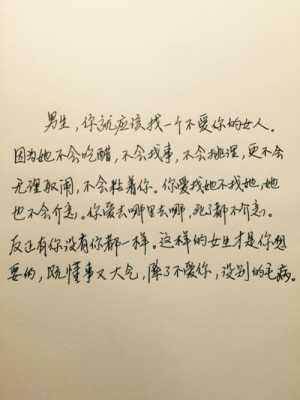 男生，你就应该找一个不爱你的女人。
因为她不会吃醋，不会找事，不会挑理，更不会
无理取闹，不会粘着你。你爱找她不找她，她
也不会介意。你爱去哪里去哪，死了都不介意。
反正有你没有你都一样。这样的女生才是你想
要的，既懂事又大气，除了不爱你，没别的毛病。